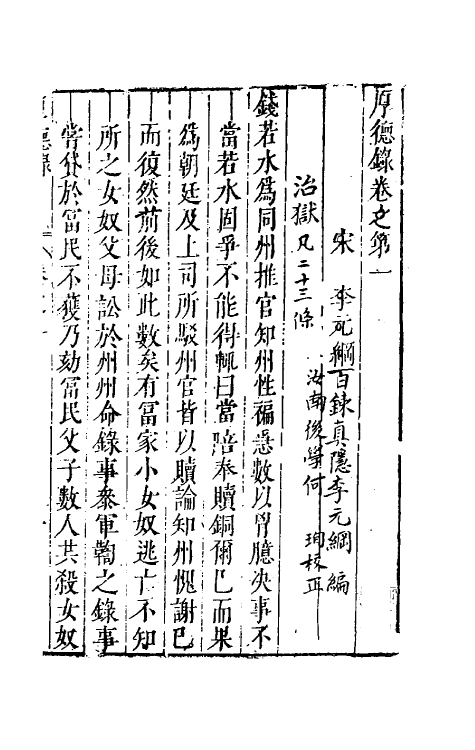 厚德錄卷之第一
宋 李元綱百鍊真隱李元綱 編
汝南後學何 珣校正
治獄凡二十三條
錢若水爲同州推官知州性褊急數以胷臆决事不
當若水固爭不能得輒曰當陪奉贖銅爾已而果
爲朝廷及上司所駁州官皆以贖論知州愧謝已
而復然前後如此數矣有冨家小女奴逃亡不知
所之女奴父母訟於州州命錄事叅軍鞫之錄事
嘗貸於冨民不獲乃劾冨民父子數人共殺女奴